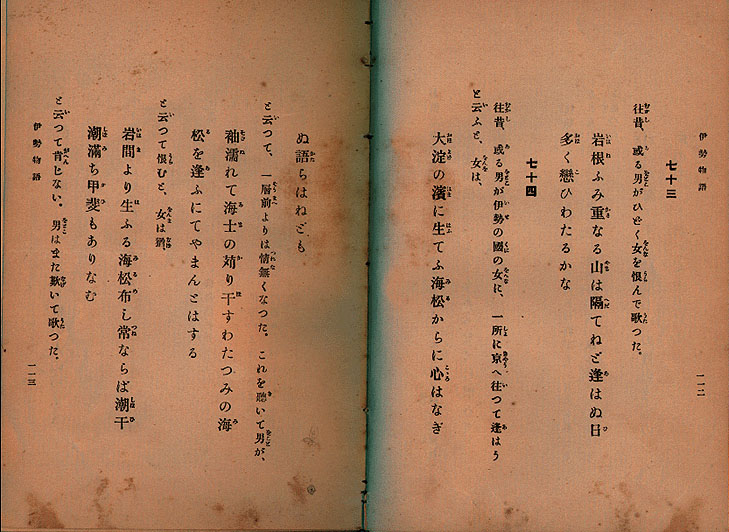 伊勢物語
七十三
往昔、或る男がひどく女を恨んで歌つた。
岩根ふみ重なる山は隔てねど逢はぬ日
多く戀ひわたるかな
七十四
往昔、或る男が伊勢の國の女に、一所に京へ往つて逢はう
と云ふと、女は、
大淀の濱に生てふ海松からに心はなぎ
一一二
ぬ語らはねども
と云つて、一層前よりは情無くなつた。これを聽いて男が、
袖濡れて海士の苅り干すわたつみの海
松を逢ふにてやまんとはする
と云つて恨むと、女は猶、
岩間より生ふる海松布し常ならば潮干
潮滿ち甲斐もありなむ
と云つて肯じない。男はまた歎いて歌つた。
伊勢物語
一一三